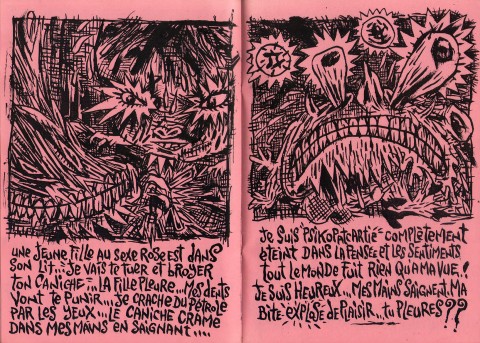 UNE JEUNE FILLE AU SEXE ROSE EST DANS
SON LIT... JE VAIS TE TUER ET BROYER
TON CANICHE = LA FILLE PLEURE... MES DENTS
VONT TE PUNIR... JE CRACHE DU PÉTROLE
PAR LES YEUX... LE CANICHE CRAME
DANS MES MAINS EN SAIGNANT....
JE SUIS PSIKOPATCARTIÉ = COMPLÈTEMENT
ÉTEINT DANS LA PENSÉE ET LES SENTIMENTS
TOUT LE MONDE FUIT RIEN QU'A MA VUE!
JE SUIS HEUREUX... MES MAINS SAIGNENT. MA
BITE EXPLOSE DE PLAISIR... TU PLEURES??